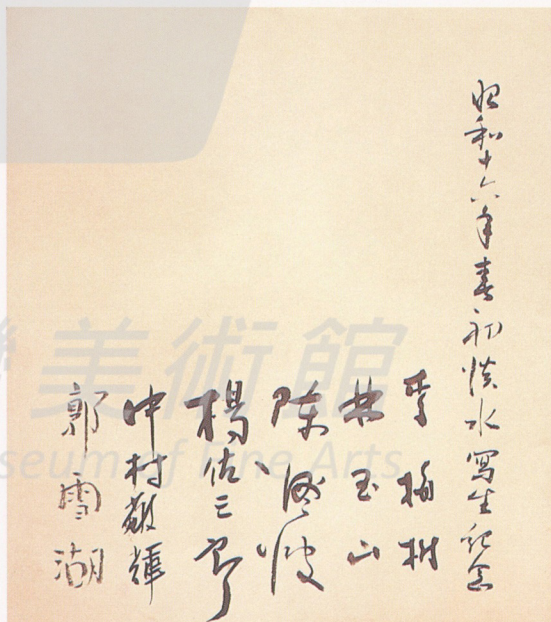 昭和十六年春初淡水寫生紀念
李梅樹
林玉山
陳澄波
楊佐三郎
中村敬輝
郭雪湖
美術館
seum of Fine Arts